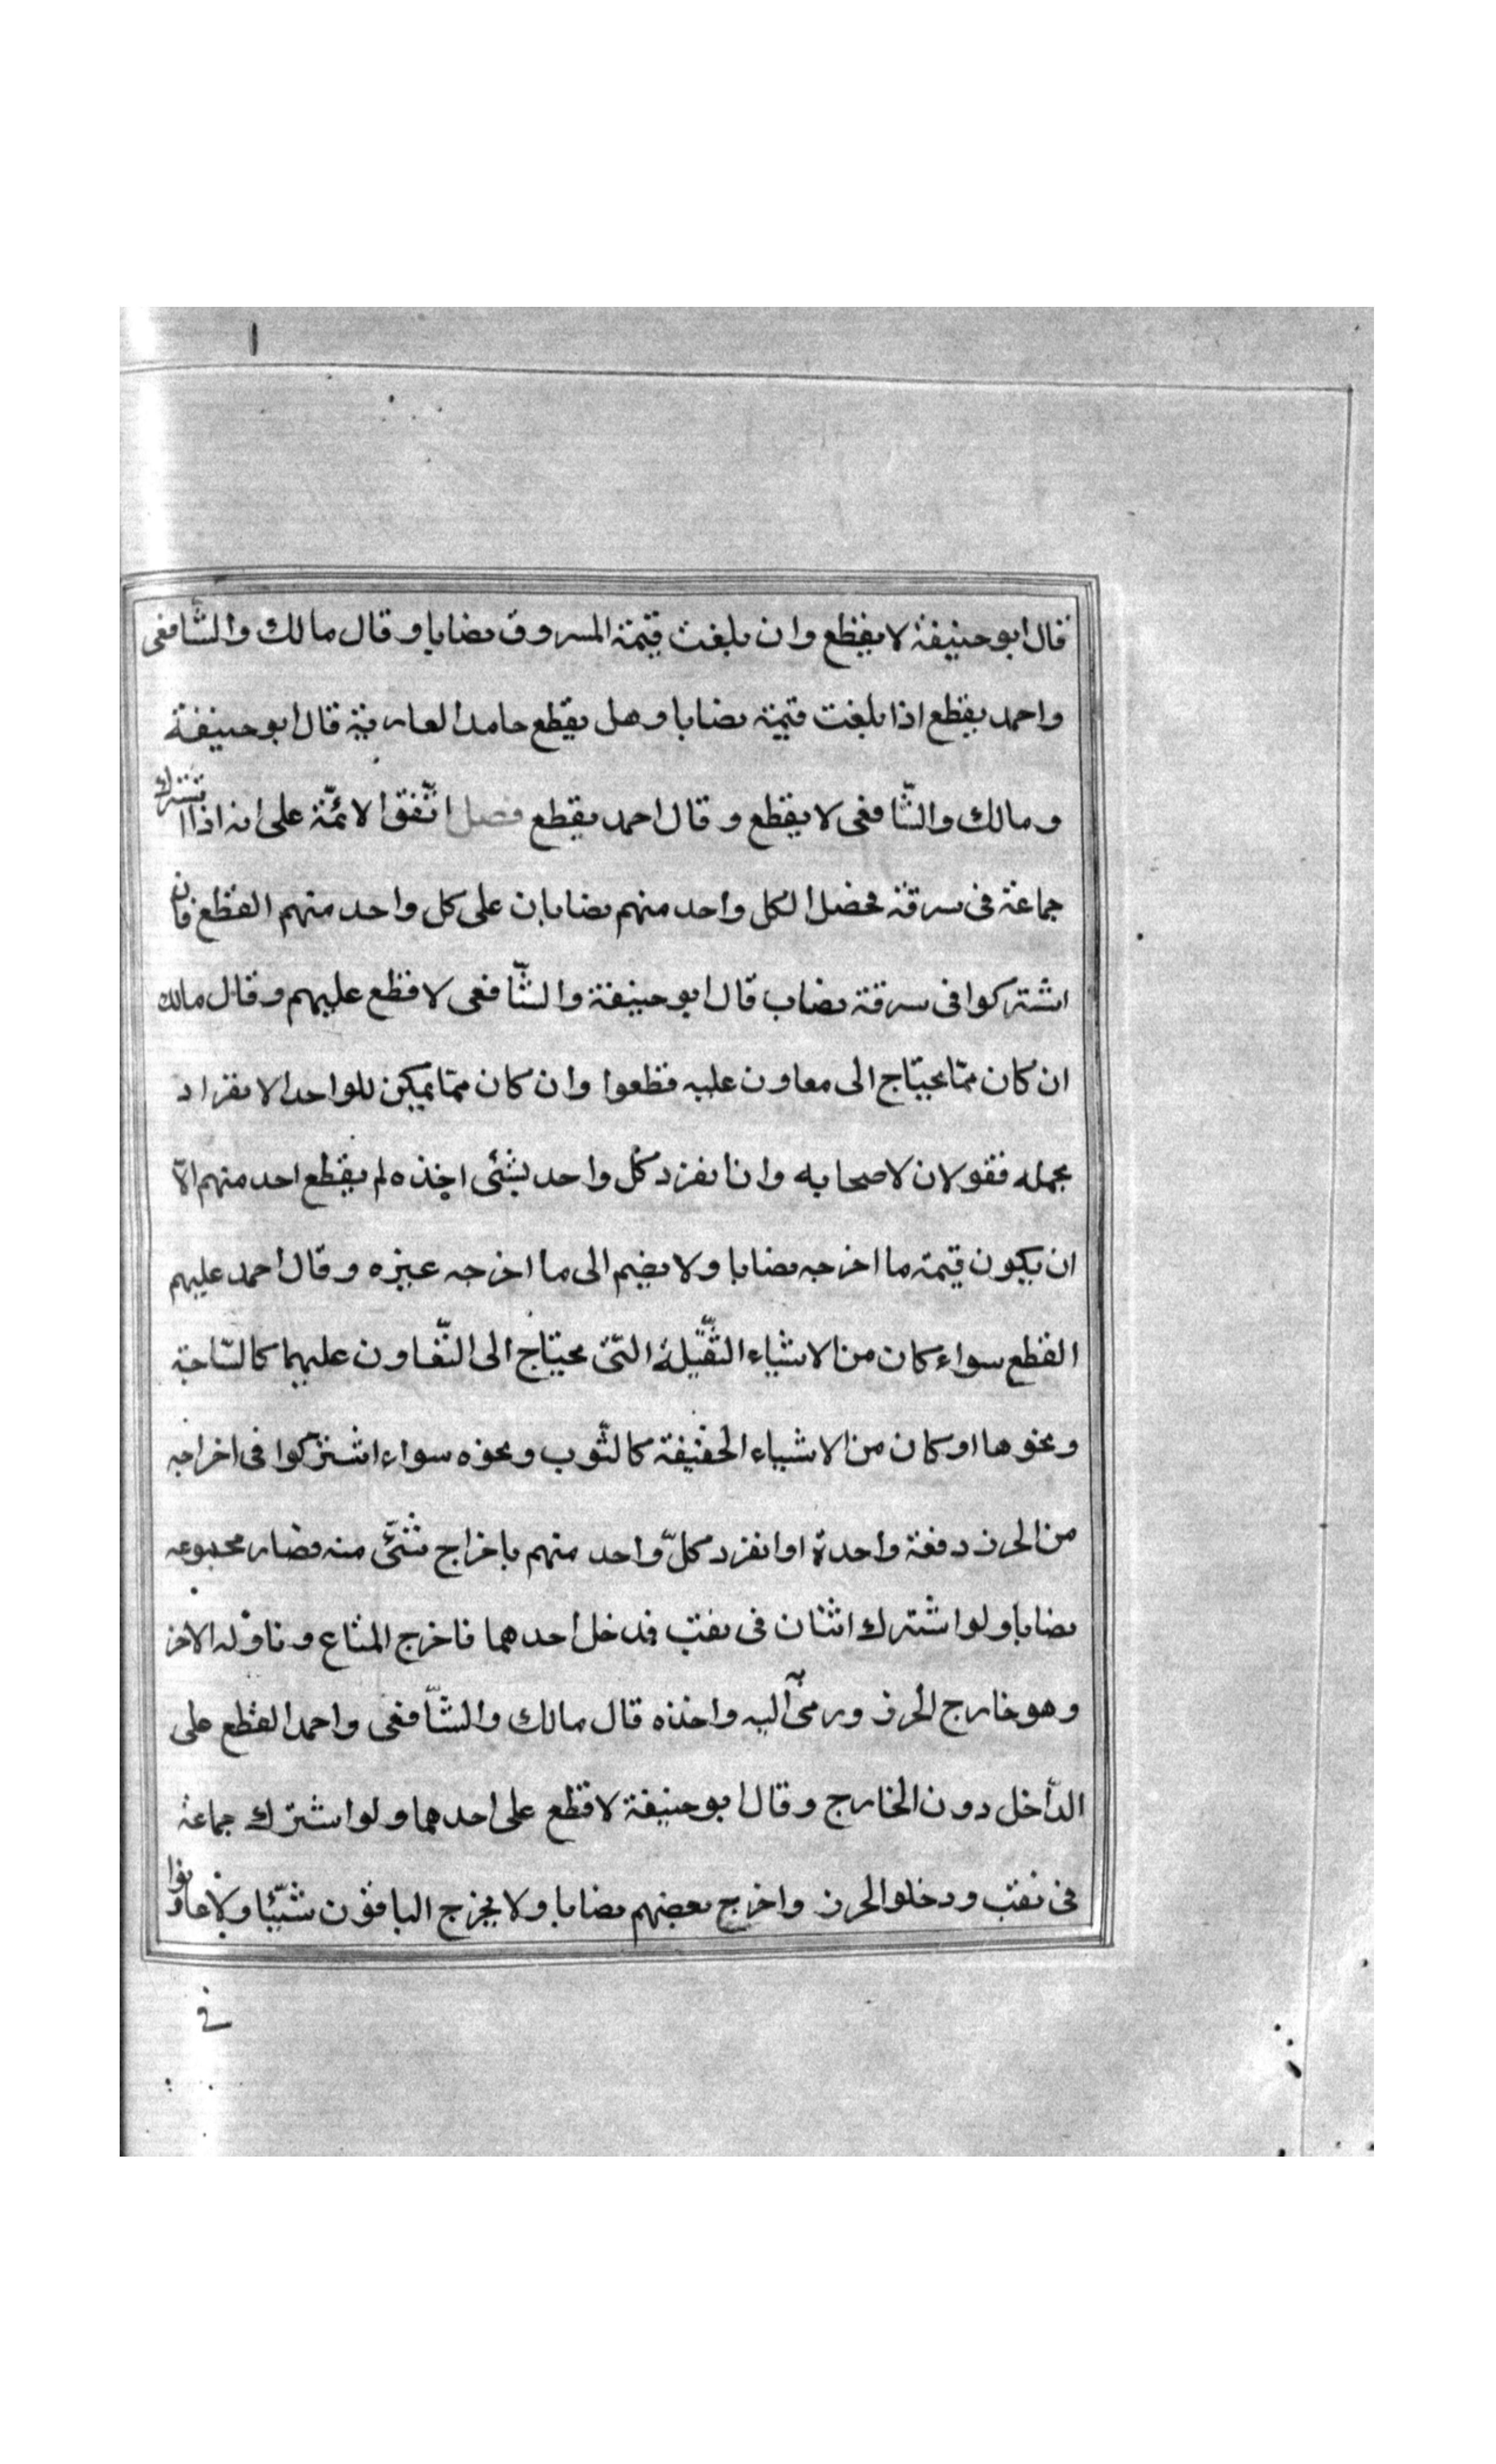 قال ابو حنيفة لا يقطع وان بلغت قيمة المسروق نصابا وقال مالك والشافعى
واحمد يقطع اذا بلغت قيمة نصابا وهل يقطع جاحد العارية قال ابو حنيفة
ومالك والشّافعى لا يقطع وقال احمد يقطع فصل اتّفق الائمّة على انه اذا اشترك
جماعة فى سرقة فحصل لكل واحد منهم نصابا ان على كل واحد منهم القطع فان
اشتركوا فى سرقة نصاب قال ابو حنيفة والشّافعى لا قطع عليهم وقال مالك
ان كان ممّا يحتاج الى معاون عليه قطعوا وان كان ممّا يمكن للواحد الانفراد
بحمله فقولان لاصحابه وان انفرد كل واحد بشئى اخذه لم يقطع احد منهم الّا
ان يكون قيمة ما اخرجه نصابا ولا يضم الى ما اخرجه غيره وقال احمد عليهم
القطع سواء كان من الاشياء الثّقيلة الّتى يحتاج الى التّعاون عليها كالسّاجة
ونحوها او كان من الاشياء الخفيفة كالثّوب ونحوه سواء اشتركوا فى اخراجه
من الحرز دفعة واحدة او انفرد كلّ واحد منهم باخراج شئى منه فصار مجموعه
نصابا ولو اشترك اثنان فى نقب فدخل احدهما فاخرج المتاع وناوله الاخر
وهو خارج الحرز ورمى به اليه واخذه قال مالك والشّافعى واحمد القطع على
الدّاخل دون الخارج وقال ابو حنيفة لا قطع على احدهما ولو اشترك جماعة
فى نقب ودخلوا الحرز واخرج بعضهم نصابا ولا يخرج الباقون شيئا ولا عاونوا
فى